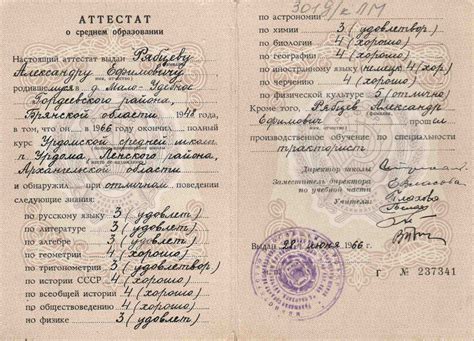 АТТЕСТАТ
о среднем образовании
Настоящий аттестат выдан Рябцеву
Александру Ефимовичу
родившемуся в д. Мало-Удебное
Гордеевского района,
Брянской области 1948 года
в том, что он в 1966 году окончил полный
курс Урдомской средней школы
п. Урдома Ленского района,
Архангельской области
и обнаружил при отличном поведении
следующие знания:
по русскому языку 3 (удовлет)
по литературе 3 (удовлет)
по алгебре 3 (удовлет)
по геометрии 4 (хорошо)
по тригонометрии 3 (удовлет)
по истории СССР 4 (хорошо)
по всеобщей истории 4 (хорошо)
по обществоведению 4 (хорошо)
по физике 3 (удовлет)
3019/к ПМ
по астрономии
по химии 3 (удовлетвор)
по биологии 4 (хорошо)
по географии 4 (хорошо)
по иностранному языку немец 4 (хор)
по черчению 4 (хорошо)
по физической культуре 5 (отлично)
Кроме того, Рябцев Александр
Ефимович прошел
производственное обучение по специальности
тракторист
Директор школы
Заместитель директора
по учебной части Власова
Учителя:
Выдан 28 июня 1966 г.
г № 237341